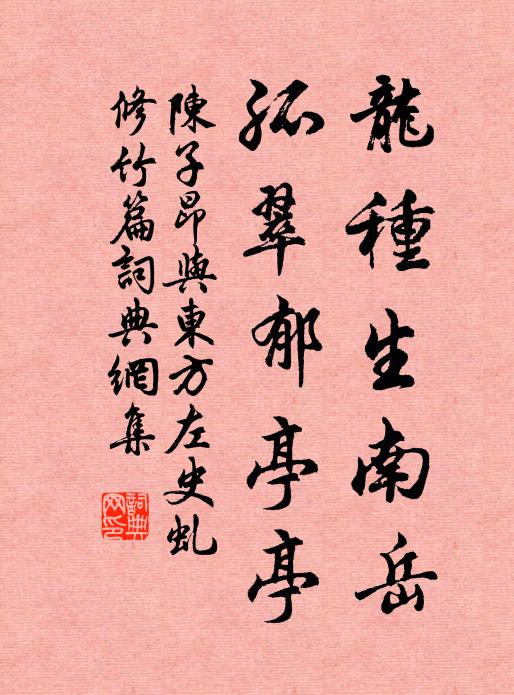 龍種生南岳
孤翠郁亭亭
陳子昂與東方左史虬
修竹篇詞典網集
詞典
网印